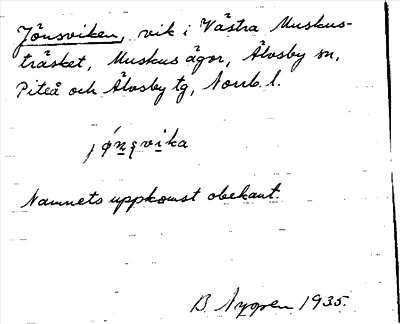 Jönsviken, vik i Västra Muskus-
träsket, Muskus ägor, Älvsby sn,
Piteå och Älvsby tg, Norrb. l.
jǿnsvika
Namnets uppkomst obekant.
B. Nygren 1935.